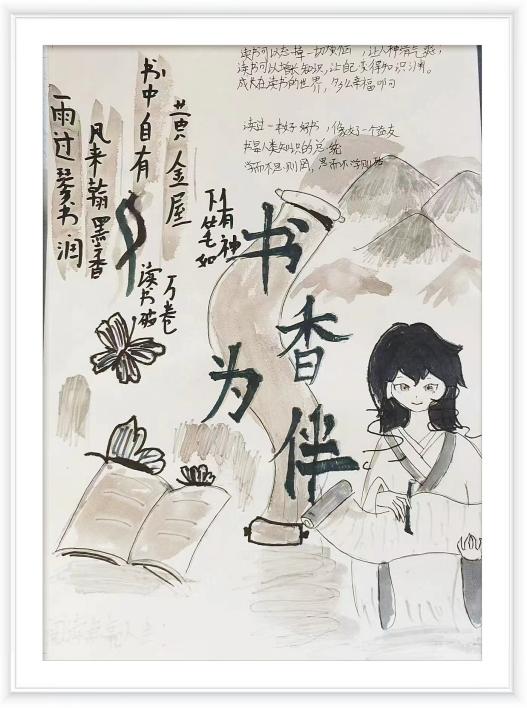 读书可以忘掉一切烦恼，让人神清气爽；
读书可以增长知识，让自己变得知识渊。
成长在读书的世界，多么幸福呀
读过一本好书，像交了一个益友
书是人类知识的总统
学而不思则罔，思而不学则殆
书中自有
黄金屋
风来翰墨香
雨过琴书润
读书破
万卷
下笔
有神
如
书香
为
伴